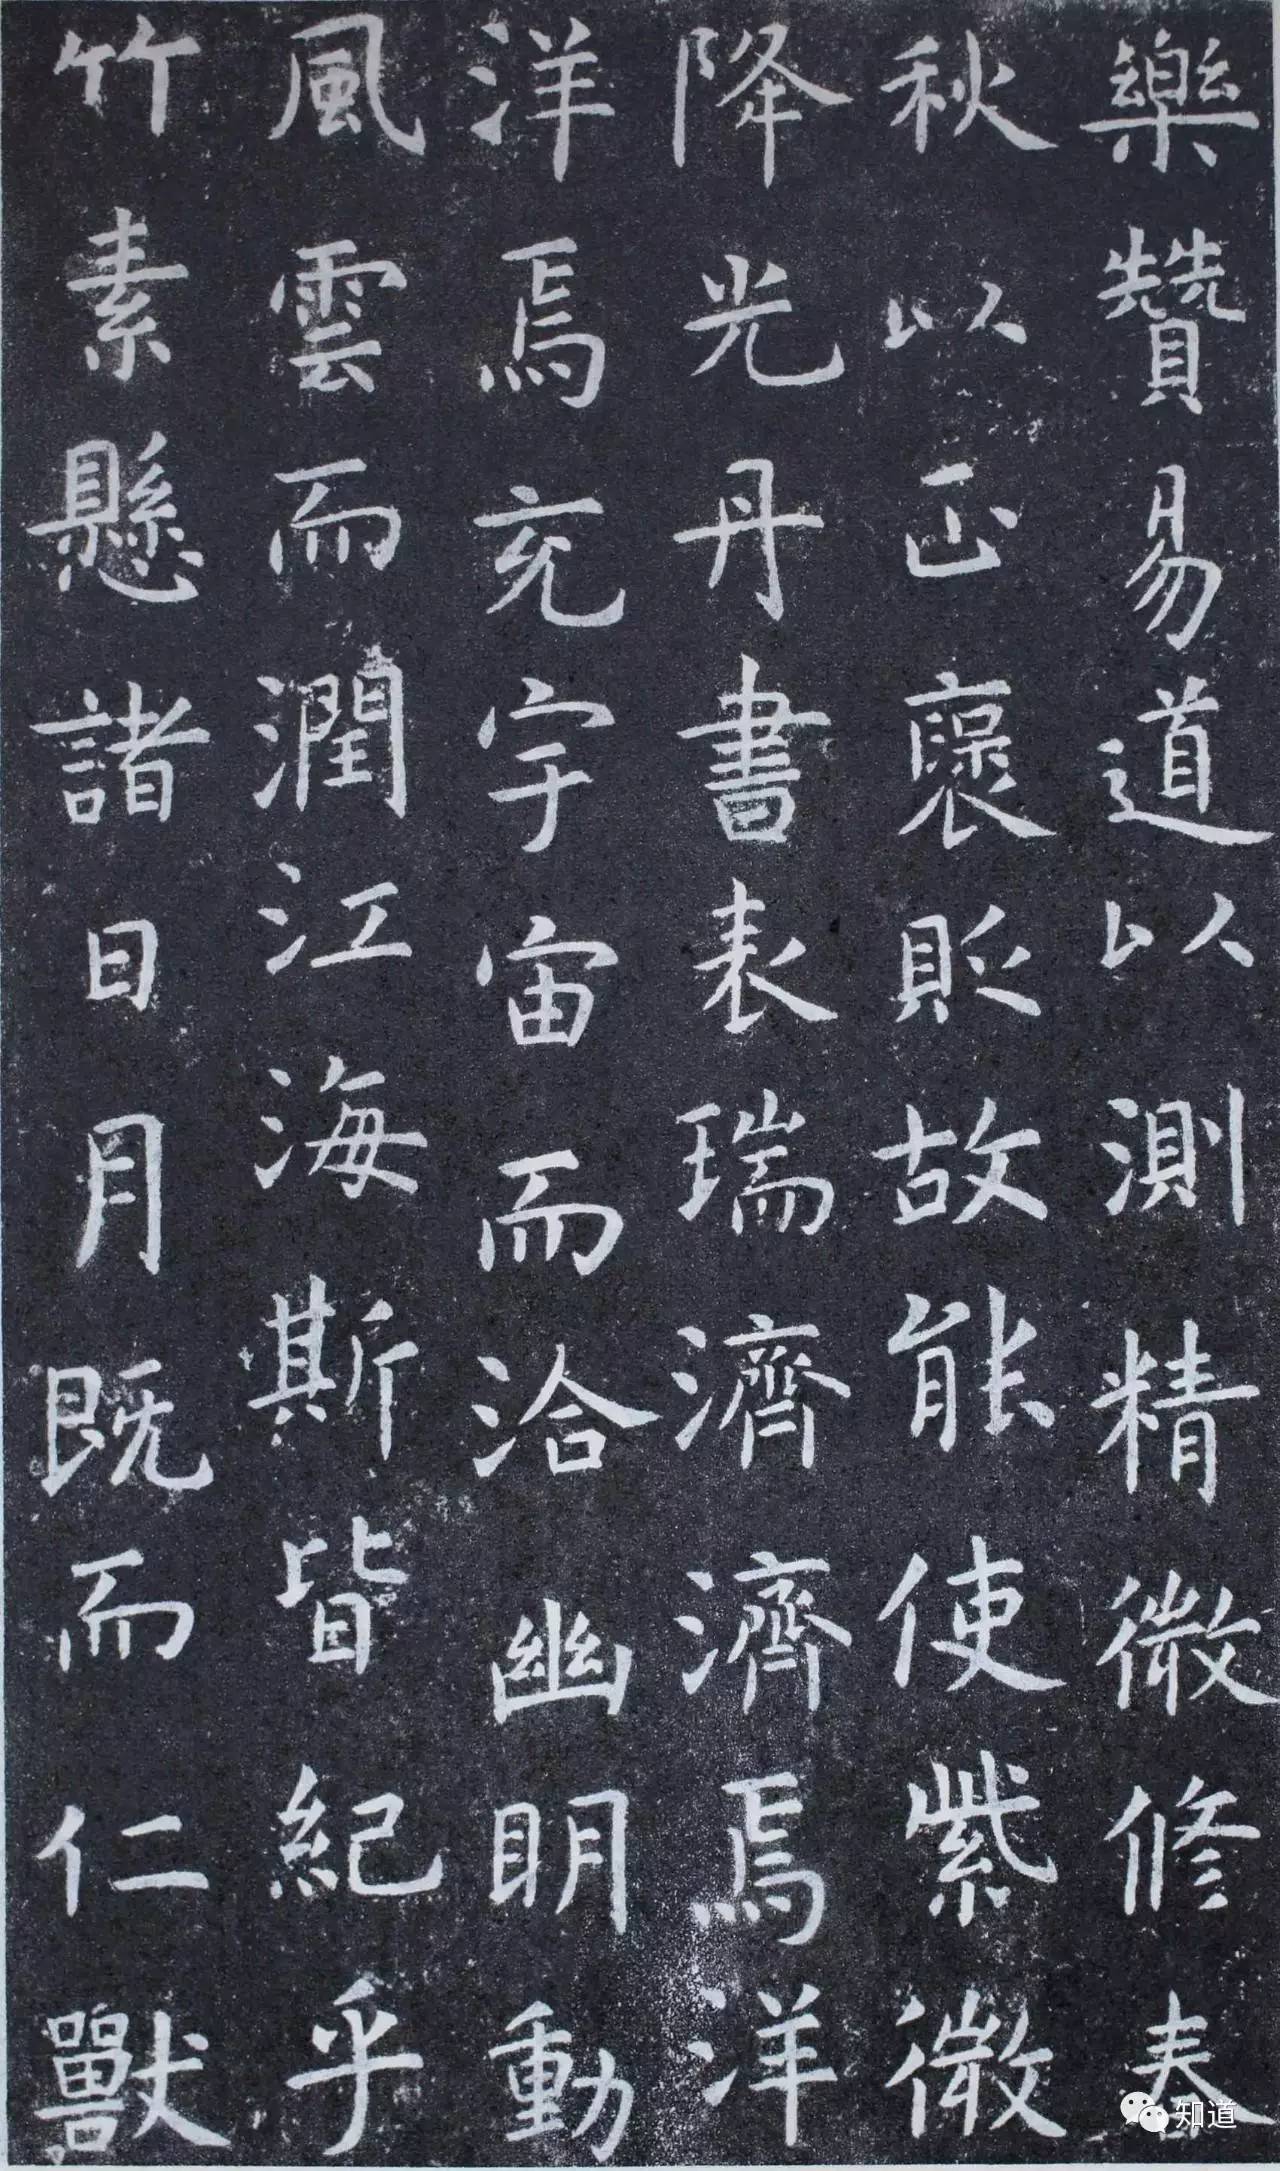 樂贊易道以測精微修春
秋以正褒貶故能使紫微
降光丹書表瑞濟濟焉洋
洋焉充宇宙而洽幽明動
風雲而潤江海斯皆紀乎
竹素懸諸日月既而仁獸
知道